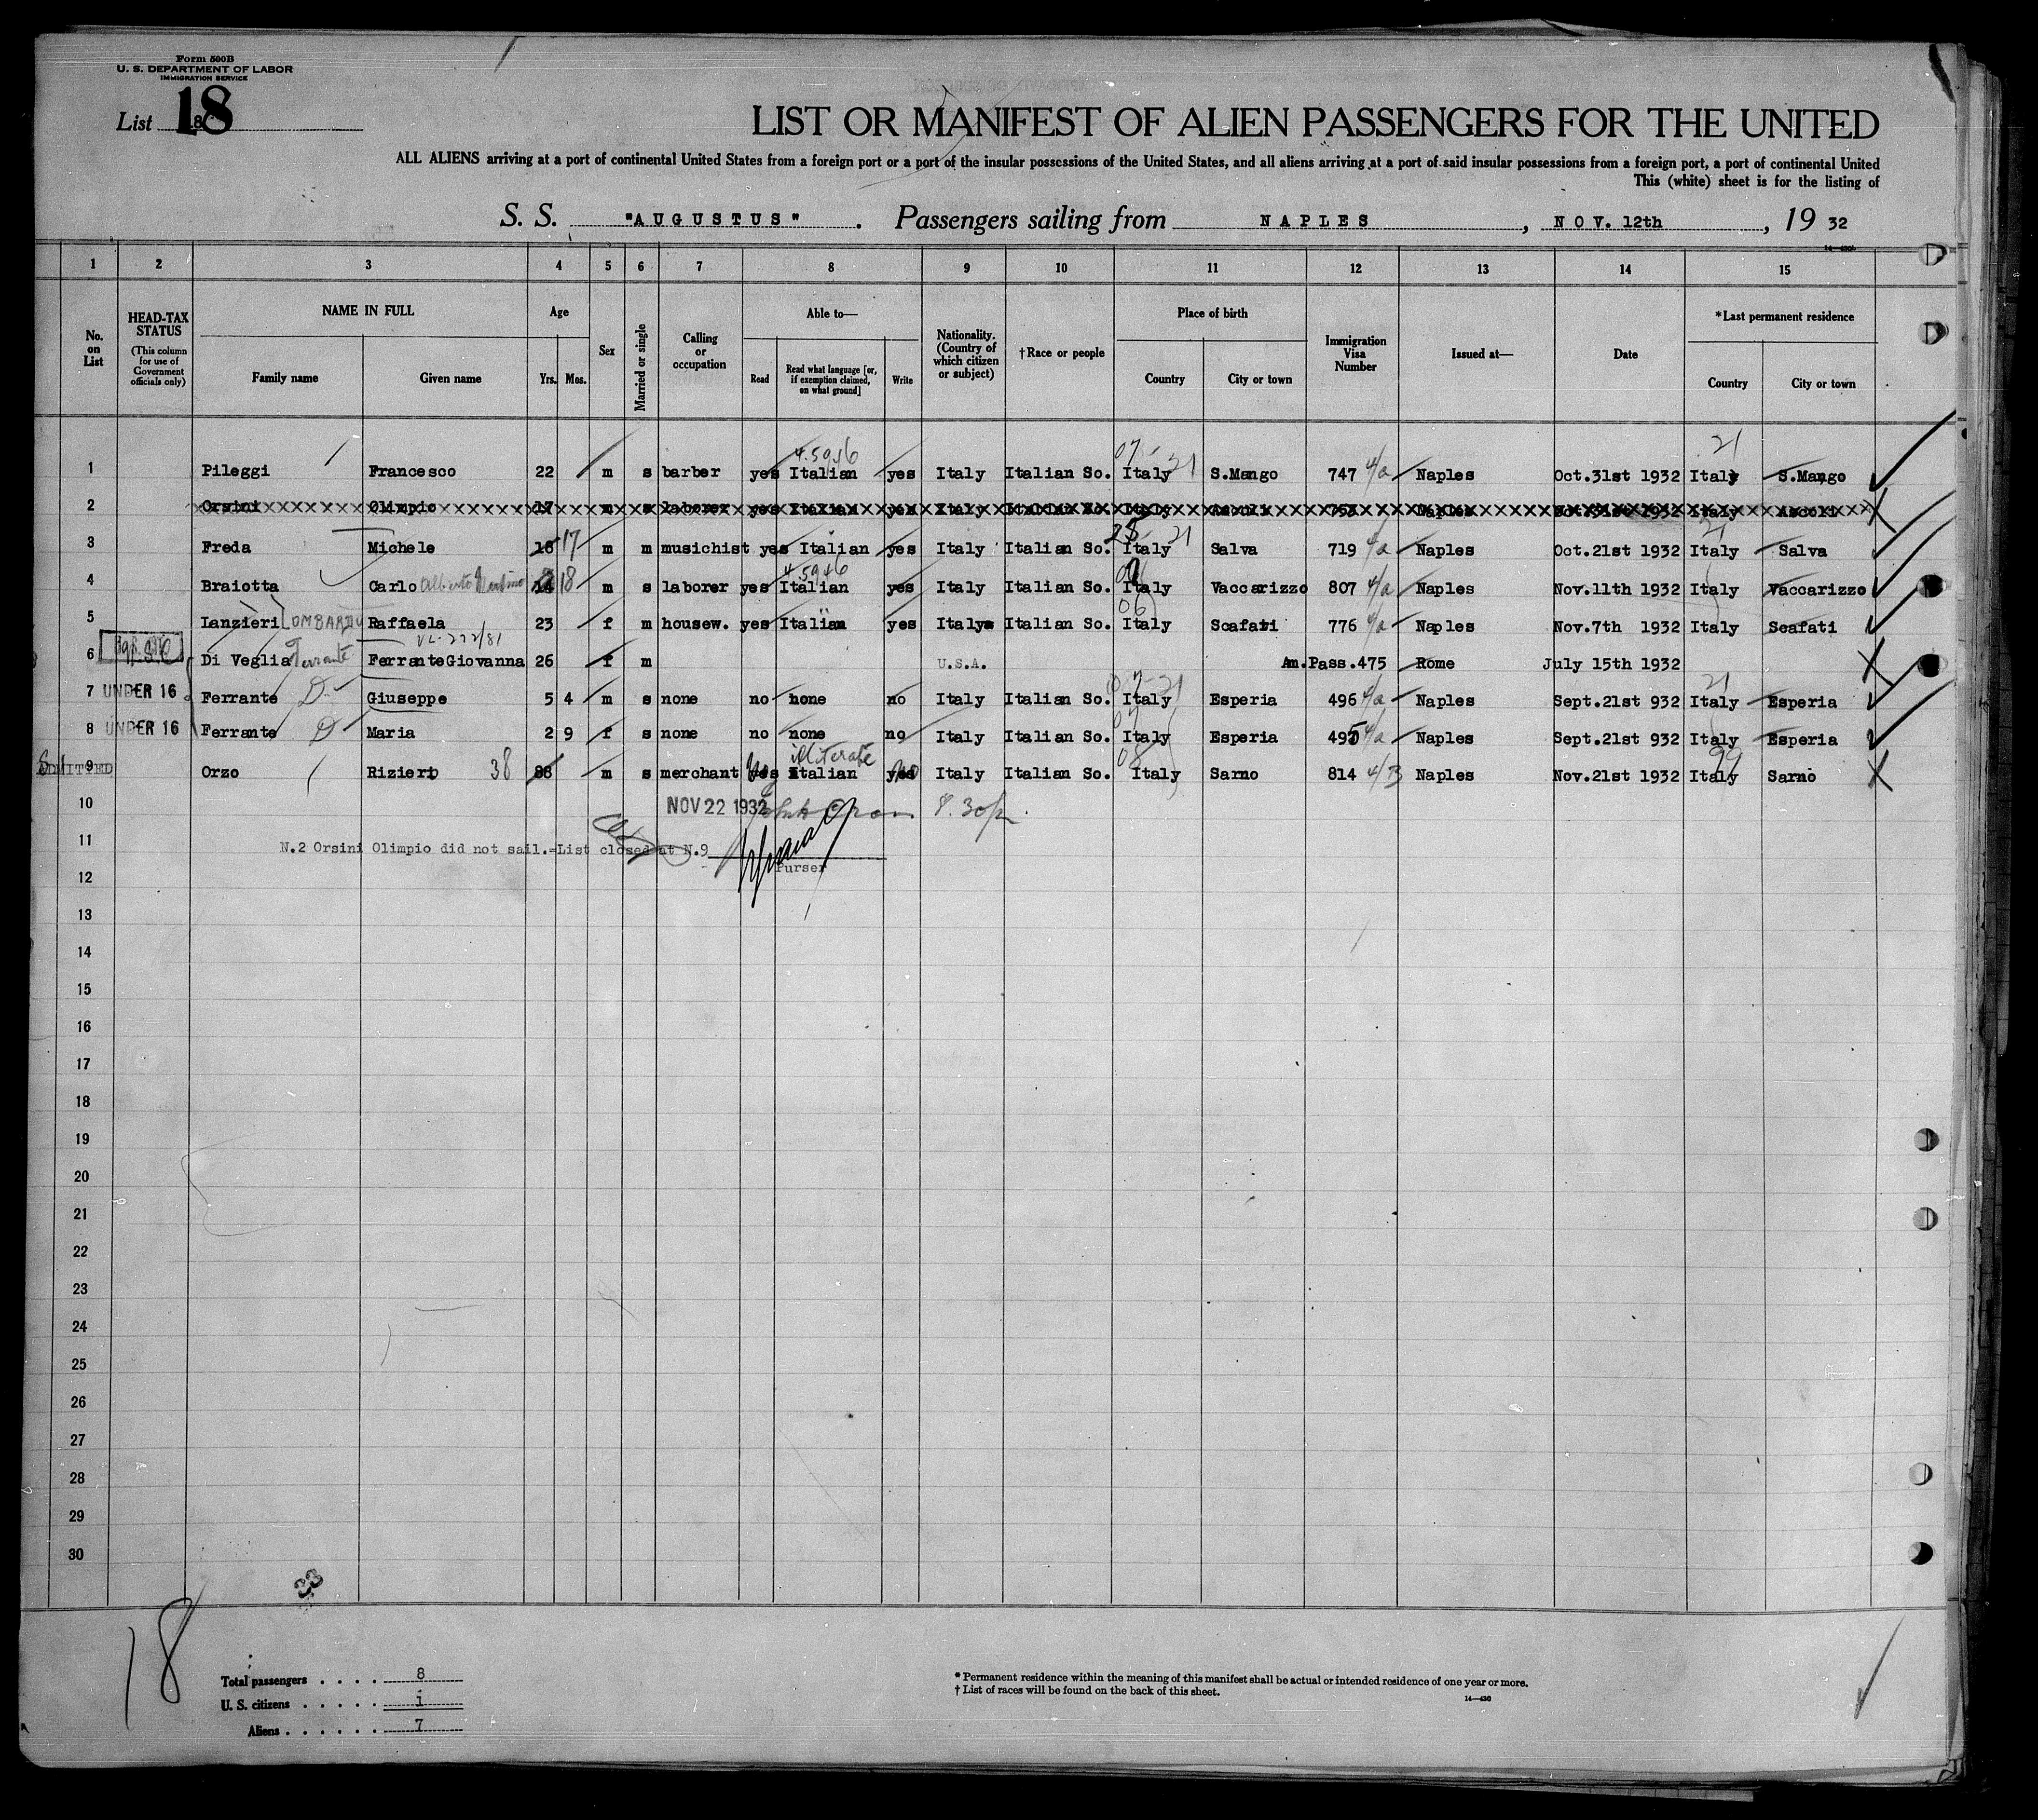 Form 500B
U. S. DEPARTMENT OF LABOR
IMMIGRATION SERVICE
List 18
LIST OR MANIFEST OF ALIEN PASSENGERS FOR THE UNITED
ALL ALIENS arriving at a port of continental United States from a foreign port or a port of the insular possessions of the United States, and all aliens arriving at a port of said insular possessions from a foreign port, a port of continental United
This (white) sheet is for the listing of
S. S. "AUGUSTUS". Passengers sailing from NAPLES, NOV. 12th, 19 32
1 2 3 4 5 6 7 8 9 10 11 12 13 14 15
No. on List
HEAD-TAX STATUS (This column for use of Government officials only)
NAME IN FULL
Family name Given name
Age
Yrs. Mos.
Sex
Married or single
Calling or occupation
Able to—
Read Read what language [or, if exemption claimed, on what ground] Write
Nationality. (Country of which citizen or subject)
†Race or people
Place of birth
Country City or town
Immigration Visa Number
Issued at—
Date
*Last permanent residence
Country City or town
1 Pileggi Francesco 22 m s barber yes Italian yes Italy Italian So. Italy S.Mango 747 Naples Oct.31st 1932 Italy S.Mango
2 Orsini Olimpio 17 m s laborer yes Italian yes Italy Italian So. Italy Ascoli Naples Oct.31st 1932 Italy Ascoli
3 Freda Michele 17 m m musichist yes Italian yes Italy Italian So. Italy Salva 719 Naples Oct.21st 1932 Italy Salva
4 Braiotta Carlo Alberto Martino 18 m s laborer yes Italian yes Italy Italian So. Italy Vaccarizzo 807 Naples Nov.11th 1932 Italy Vaccarizzo
5 Lanzieri LOMBARDI Raffaela 23 f m housew. yes Italian yes Italy Italian So. Italy Scafati 776 Naples Nov.7th 1932 Italy Scafati
6 Di Veglia Ferrante FerranteGiovanna 26 f m U.S.A. Am.Pass.475 Rome July 15th 1932
7 UNDER 16 Ferrante Giuseppe 5 4 m s none no none no Italy Italian So. Italy Esperia 496 Naples Sept.21st 932 Italy Esperia
8 UNDER 16 Ferrante Maria 2 9 f s none no none no Italy Italian So. Italy Esperia 495 Naples Sept.21st 932 Italy Esperia
9 ADMITTED Orzo Rizieri 38 m s merchant yes Italian illiterate no Italy Italian So. Italy Sarno 814 Naples Nov.21st 1932 Italy Sarno
10 NOV 22 1932 8.30p
11 N.2 Orsini Olimpio did not sail.=List closed at N.9
Purser
12
13
14
15
16
17
18
19
20
21
22
23
24
25
26
27
28
29
30
33
18
Total passengers . . . . 8
U. S. citizens . . . . . i
Aliens . . . . . . 7
* Permanent residence within the meaning of this manifest shall be actual or intended residence of one year or more.
† List of races will be found on the back of this sheet.
14—430